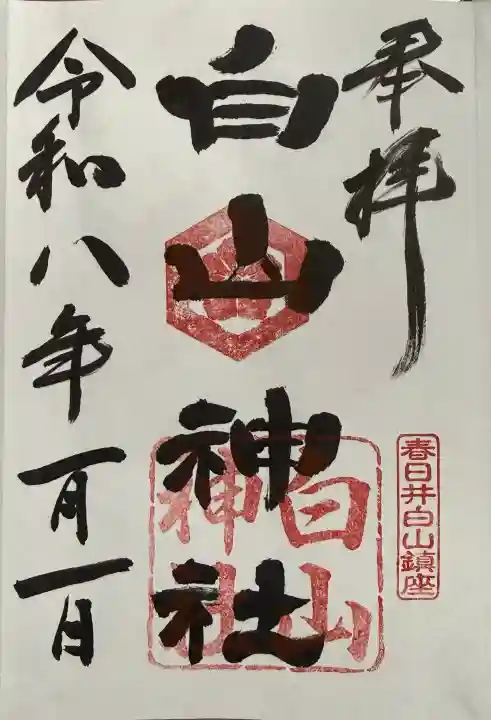 奉拝
春日井白山鎮座
白山神社
白山
神社
令和八年一月一日